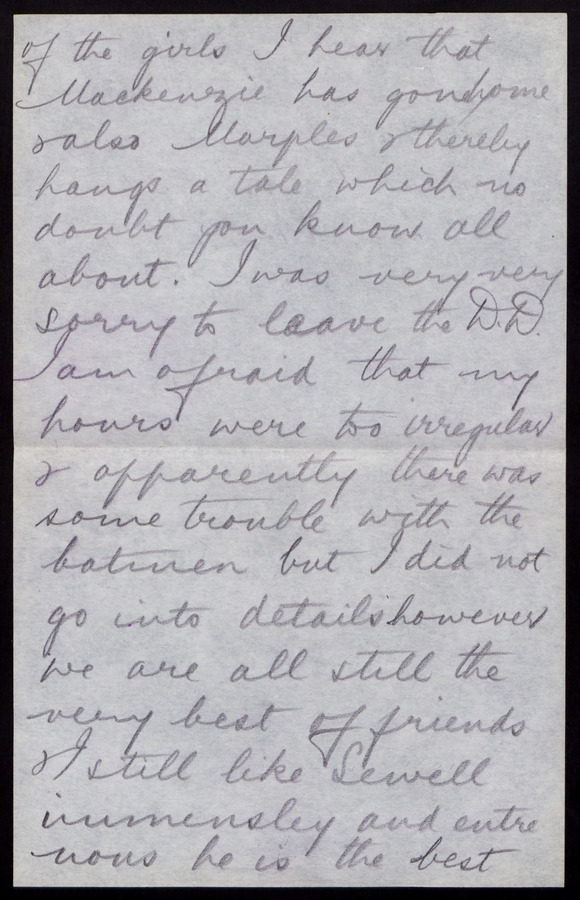 of the girls I hear that
Mackenzie has gone home
& also Marples & thereby
hangs a tale which no
doubt you know all
about. I was very very
sorry to leave the D.D.
I am afraid that my
hours were too irregular
& apparently there was
some trouble with the
batmen but I did not
go into details however
we are all still the
very best of friends
& I still like Sewell
immensley and entre
nous he is the best